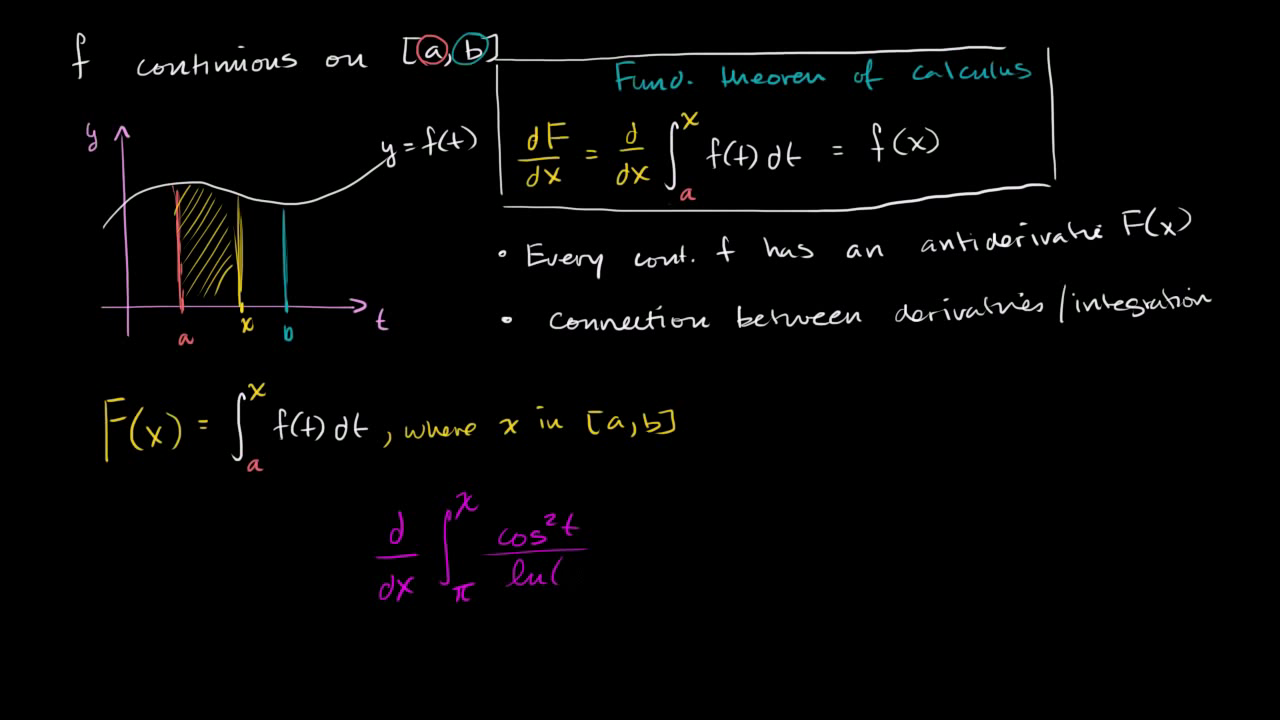 f continuous on [a, b]
Fund. theorem of calculus
dF/dx = d/dx ∫_a^x f(t) dt = f(x)
y
y = f(t)
a x b t
• Every cont. f has an antiderivative F(x)
• connection between derivatives/integration
F(x) = ∫_a^x f(t) dt, where x in [a, b]
d/dx ∫_π^x cos²t / ln(